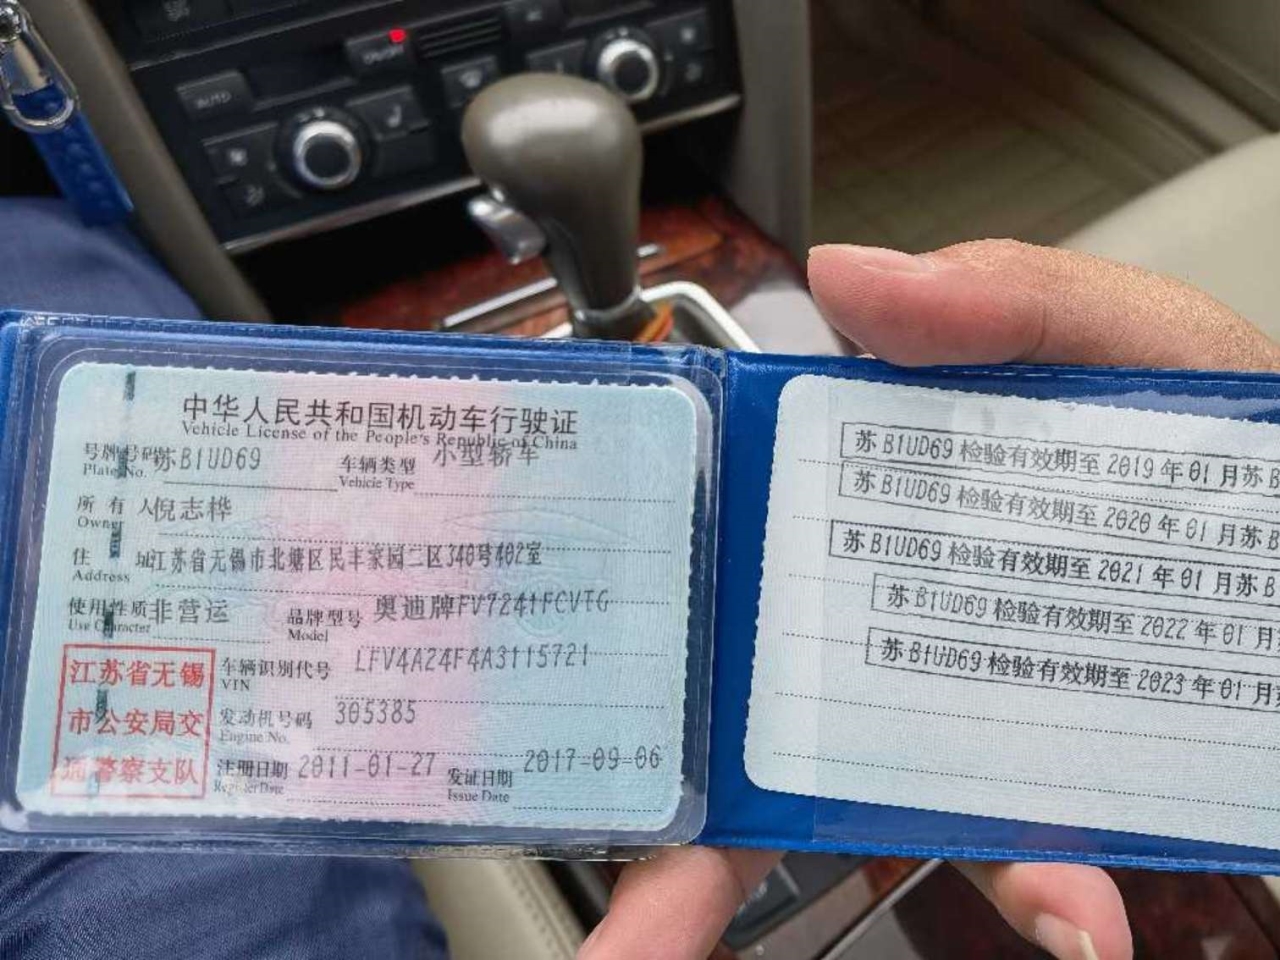 AUTO
中华人民共和国机动车行驶证
Vehicle License of the People's Republic of China
号牌号码 苏B1UD69 车辆类型 小型轿车
Plate No. Vehicle Type
所有人 倪志桦
Owner
住址 江苏省无锡市北塘区民丰家园二区340号402室
Address
使用性质 非营运 品牌型号 奥迪牌FV7241FCVTG
Use Character Model
车辆识别代号 LFV4A24F4A3115721
VIN
发动机号码 305385
Engine No.
注册日期 2011-01-27 发证日期 2017-09-06
Register Date Issue Date
江苏省无锡
市公安局交
通警察支队
苏B1UD69 检验有效期至 2019年01月苏B
苏B1UD69 检验有效期至 2020年01月苏B
苏B1UD69 检验有效期至 2021年01月苏B
苏B1UD69 检验有效期至 2022年01月
苏B1UD69 检验有效期至 2023年01月